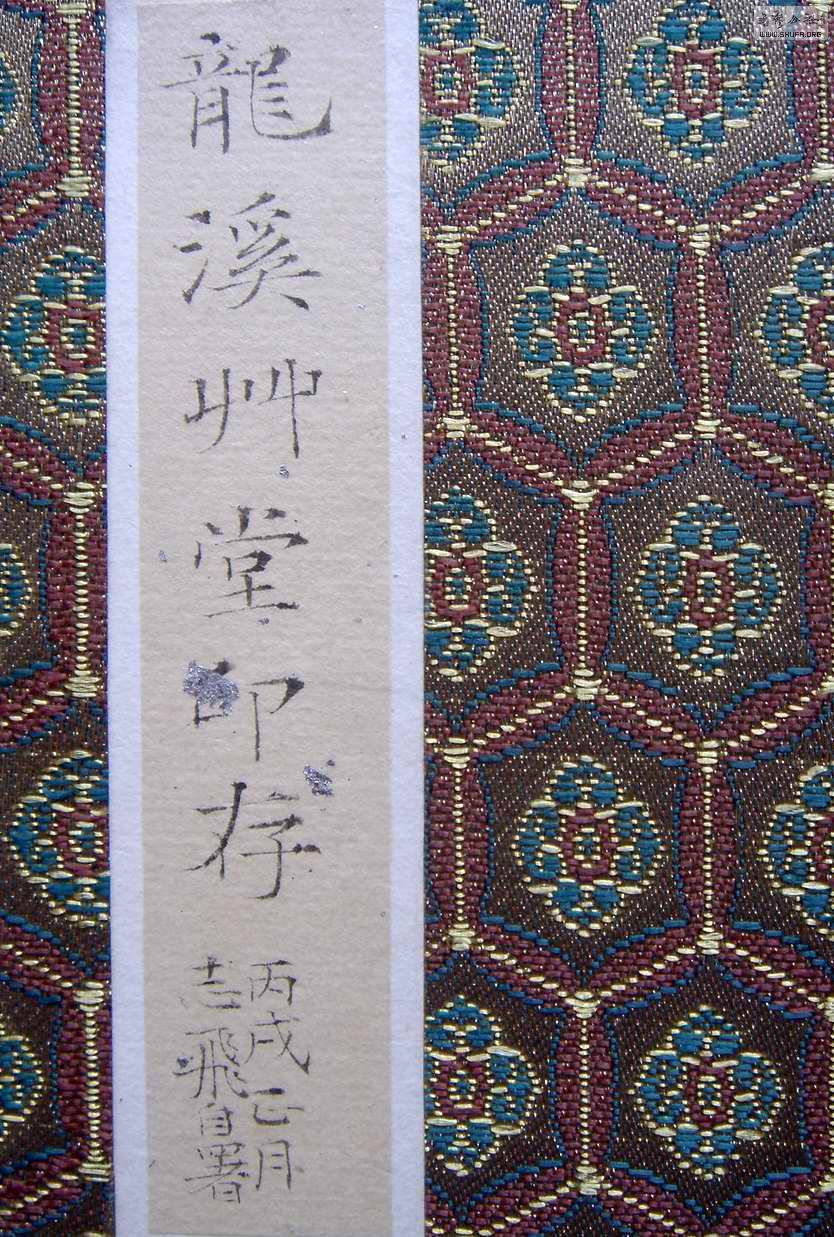 龍溪艸堂印存
丙戌正月
志飛自署
WWW.SHUFA.ORG